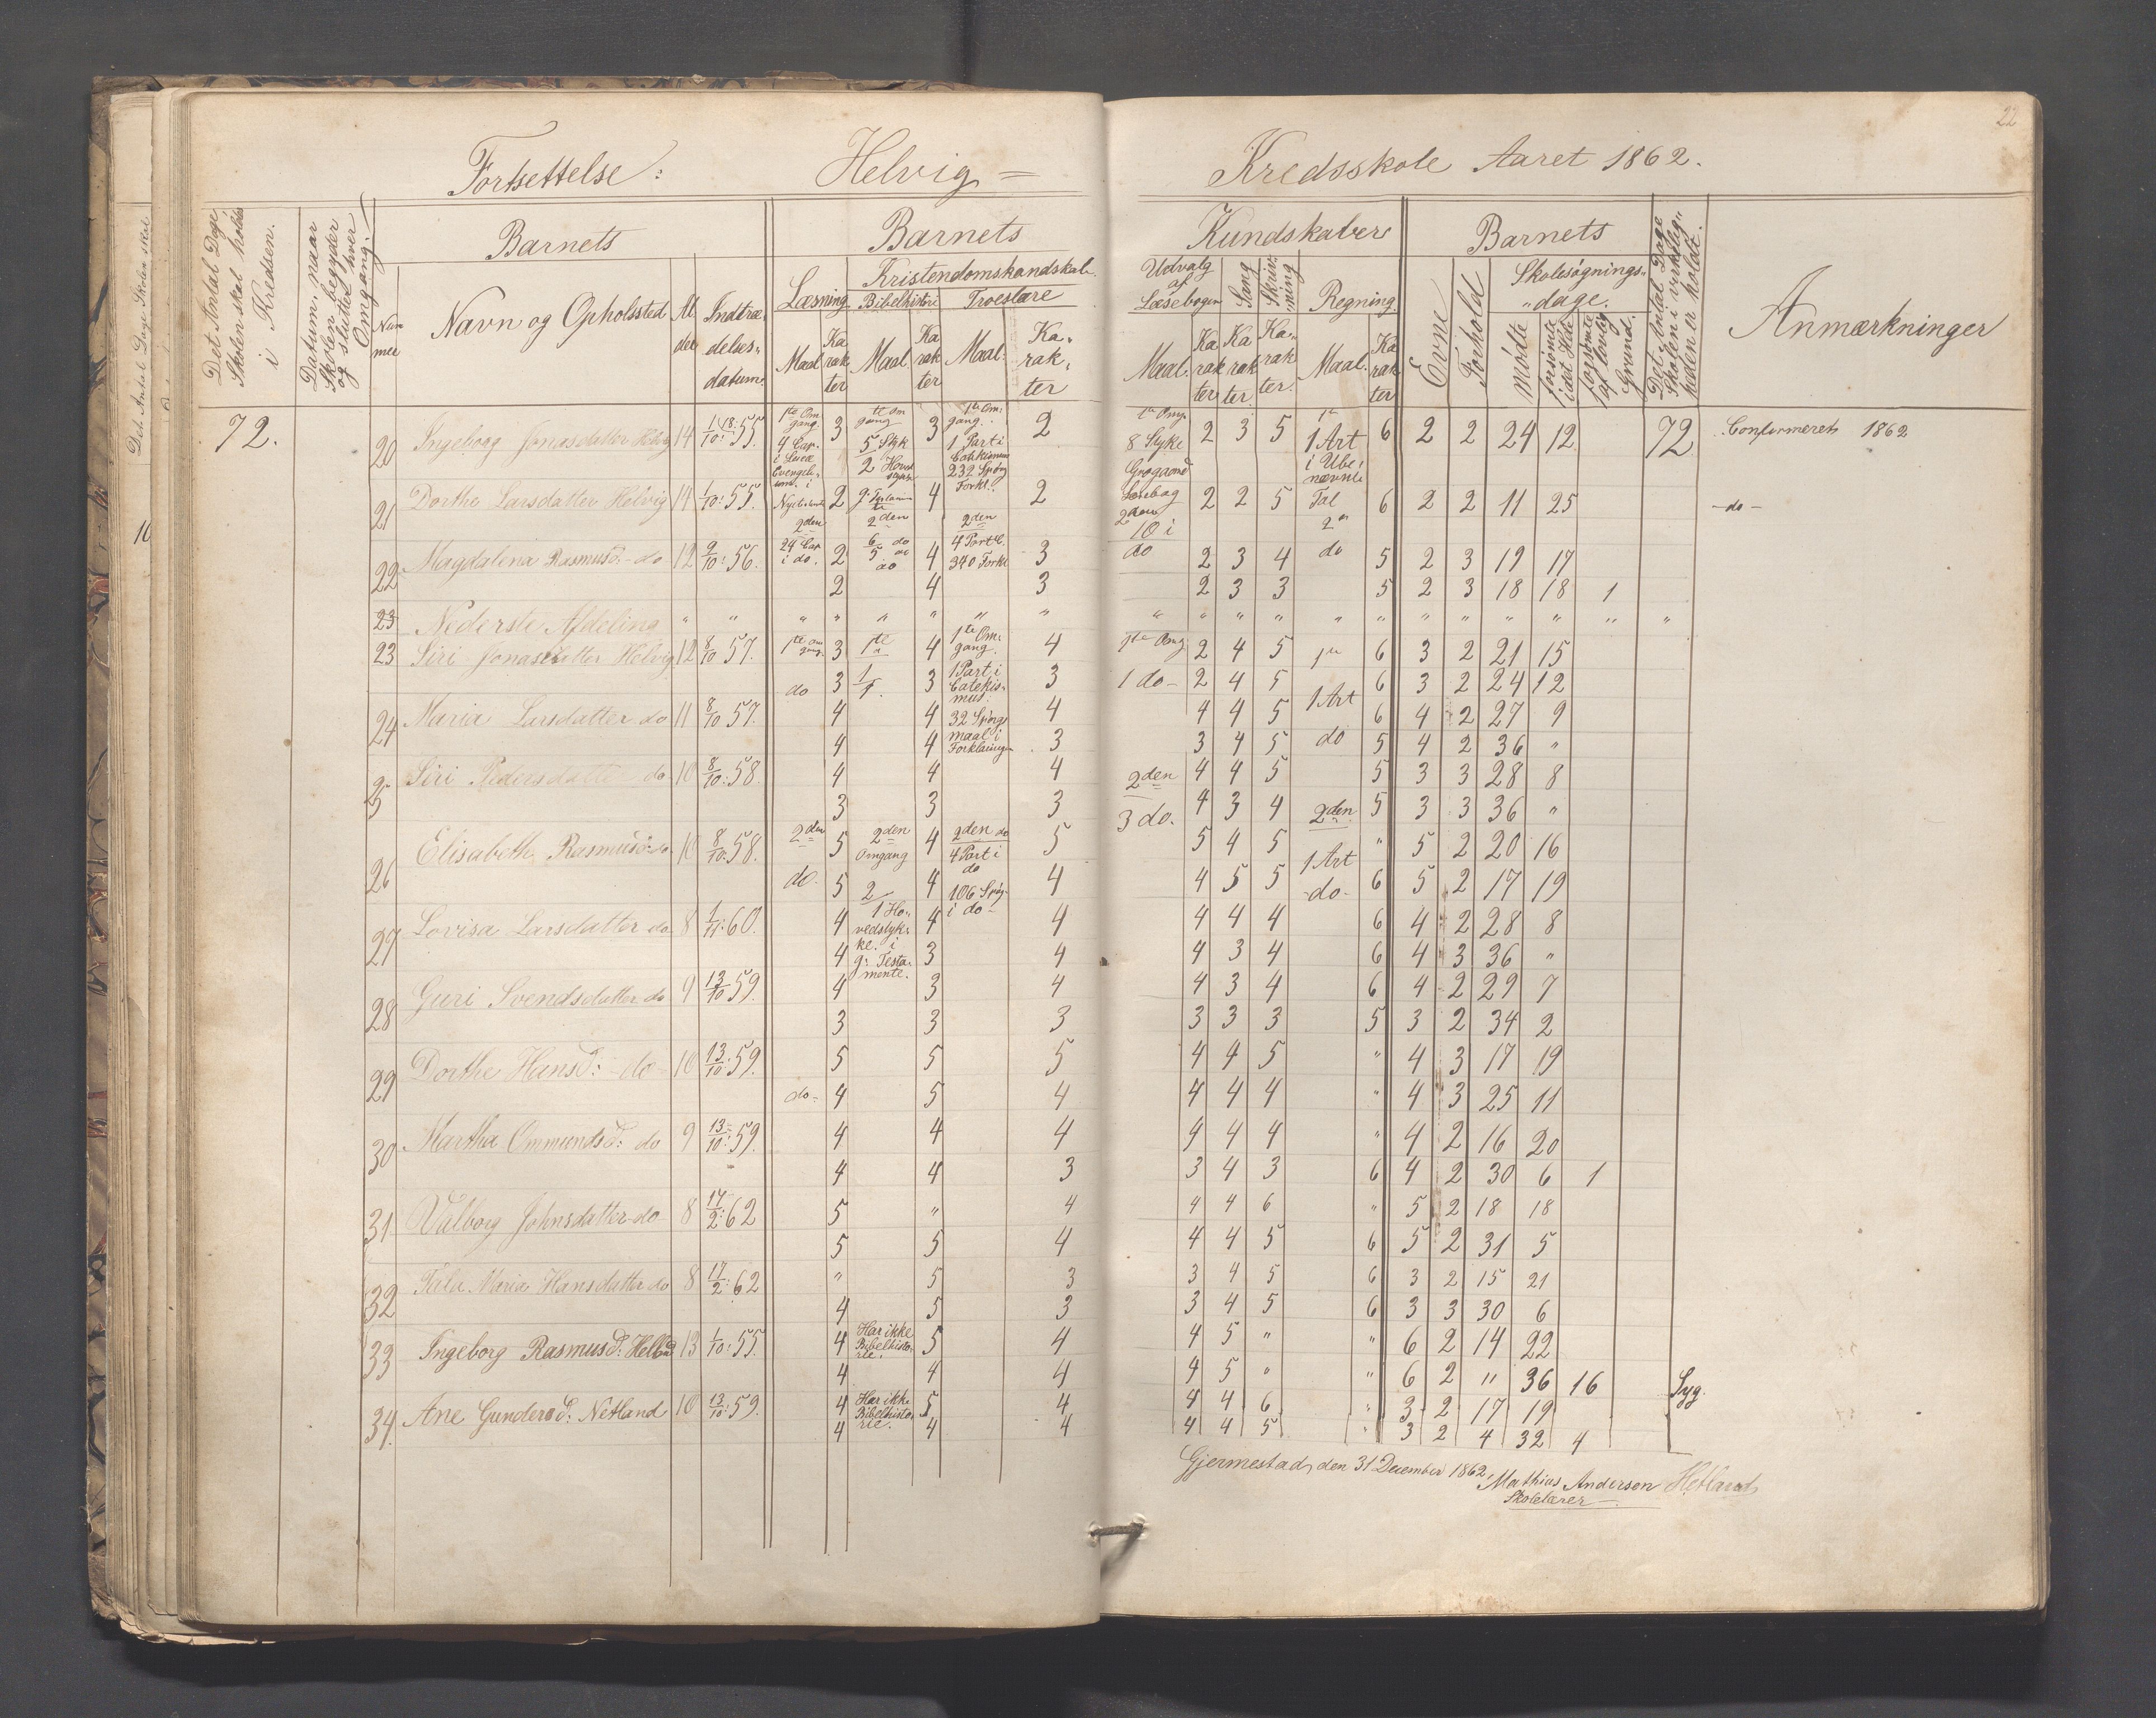 22
Fortsettelse: Helvig = Kredsskole Aaret 1862.
Det Antal Dage Skolen skal holdes i Kredsen.
Datum, naar Skolen begynder og slutter hver Omgang.
Barnets
Num mer
Navn og Opholssted
Al der
Indtræ- delses- datum
Barnets
Læsning
Maal
Ka rak ter
Kristendomskundskab.
Bibelhistori
Maal
Ka rak ter
Troeslære
Maal.
Ka- rak- ter
Kundskaber
Udvalg af Læsebogen
Maal.
Ka rak ter
Sang
Ka rak ter.
Skriv- ning
Ka- rak ter.
Regning
Maal.
Ka rak ter
Barnets
Evne
Forhold
Skolesøgnings- dage.
Mødte
forsømte i det Hele
forsømte af lovlig Grund.
Det Antal Dage Skolen i virkelig- heden er holdt.
Anmærkninger
72.
20 Ingeborg Jonasdatter Helvig 14 1/10: 55. 1te Om gang. 4 Cap. i 3 te Om gang 5 Styk 2 3 1te Om: gang. 1 Part i 232 Spørg Forkl. 2 1te Omg. 8 Syke 2 3 5 1te 1 Art i Ube- nævnte Tal 6 2 2 24 12 72 Confirmeret 1862
21 Dorthe Larsdatter Helvig 14 1/10: 55. 2 4 2 2 2 5 6 2 2 11 25 - do -
22 Magdalina Rasmusd: - do 12 9/10: 56. 2den 24 Cap i do. 2 2den 6/5 do 4 2den 4 Part 340 Forkl 3 2den 10 i do 2 3 4 do 5 2 3 19 17
2 4 3 2 3 3 5 2 3 18 18 1
23 Nederste Afdeling " " " " " " " " " " " " " " " " " " " " "
23 Siri Jonasdatter Helvig 12 8/10 57. 1te om gang. 3 1te 4 1te Om: gang. 4 1te Omg 2 4 5 1te 6 3 2 21 15
do 3 1/1. 3 1 Part i Catekis- mus. 3 1 do - 2 4 5 1 Art 6 3 2 24 12
24 Maria Larsdatter do 11 8/10 57. 4 4 32 Spørgs maal i Forklaringen 4 4 4 5 6 4 2 27 9
4 4 3 3 4 5 do 5 4 2 36 "
25 Siri Pedersdatter do 10 8/10: 58. 4 4 4 2den 4 4 5 5 3 3 28 8
3 3 3 3 do. 4 3 4 2den. 5 3 3 36 "
26 Elisabeth Rasmusd: do 10 8/10: 58. 2den 5 2den Omgang 4 2den do 4 Part i do 5 5 4 5 1 Art " 5 2 20 16
do. 5 2/1 Ho- vedstyk- ke. i g: Testa- mente. 4 106 Spørg i do - 4 4 5 5 - do - 6 5 2 17 19
27 Lovisa Larsdatter do 8 1/11: 60. 4 4 4 4 4 4 6 4 2 28 8
4 3 4 4 3 4 6 4 3 36 "
28 Guri Svendsdatter do 9 13/10 59. 4 3 4 4 3 4 6 4 2 29 7
3 3 3 3 3 3 5 3 2 34 2
29 Dorthe Hansd: - do - 10 13/10: 59. 5 5 5 4 4 5 " 4 3 17 19
do - 4 5 4 4 4 4 " 4 3 25 11
30 Martha Ommundsd: do 9 13/10: 59. 4 4 4 4 4 4 " 4 2 16 20
4 4 3 3 4 3 6 4 2 30 6 1
31 Valborg Johnsdatter do 8 17/2: 62 5 " 4 4 4 6 " 5 2 18 18
5 5 4 4 4 5 6 5 2 31 5
32 Maria Hansdatter do 8 17/2: 62 " 5 3 3 4 5 6 3 2 15 21
4 5 3 3 4 5 6 3 3 30 6
33 Ingeborg Rasmusd: 13 1/10: 55. 4 Har ikke Bibelhisto- rie. 5 4 4 5 " " 6 2 14 22
4 4 4 4 5 " " 6 2 " 36 16 Syg.
34. Ane Gundersd: Netland 10 13/10: 59. 4 Har ikke Bibelhisto- rie. 5 4 4 4 6 " 3 2 17 19
4 4 4 4 4 5 " 3 2 4 32 4
Gjermestad, den 31 December 1862, Mathias Anderson Hetland
Skolelærer
Det Antal Dage Skolen skal